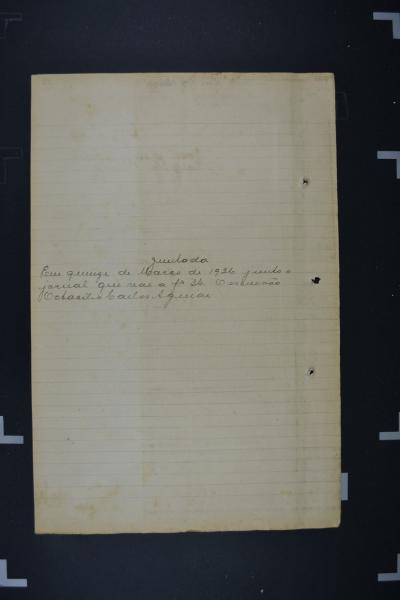 Juntada
Em quinze de Março de 1926 junto o
jornal que vae a fs 26. O escrivão
Octacilio Carlos Aguiar